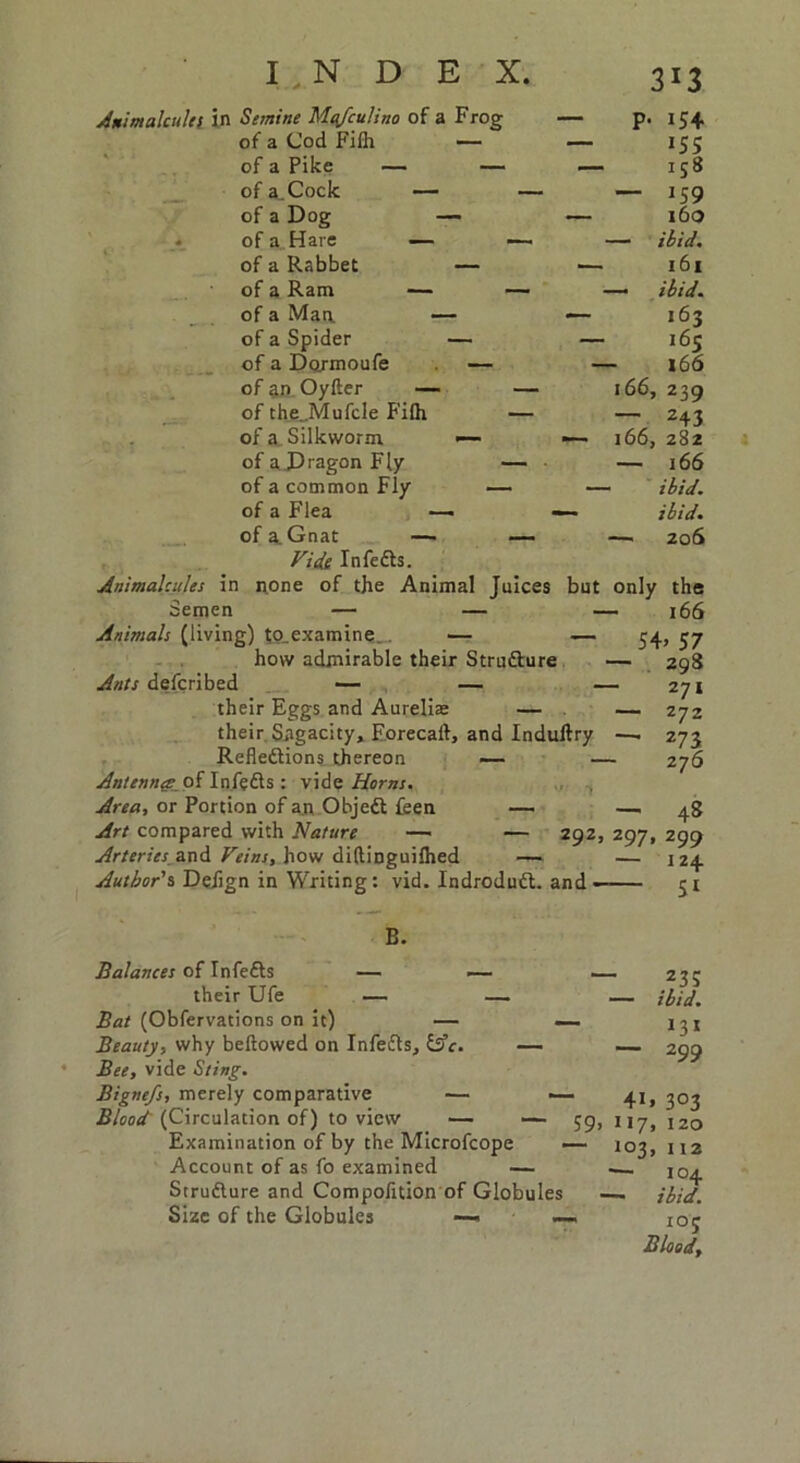 INDEX. 313
Animalcules in Semine Maſculino of a Frog — p. 154
of a Cod Fiſh — — 155
of a Pike — — — 158
of a Cock — — — 159
of a Dog — — 160
of a Hare — — — ibid.
of a Rabbet — — 161
of a Ram — — — ibid.
of a Man — — 163
of a Spider — — 165
of a Dormouſe — — 166
of an Oyſter — — 166, 239
of the Muſcle Fiſh — — 243
of a Silkworm — — 166, 282
of a Dragon Fly — — 166
of a common Fly — — ibid.
of a Flea — — ibid.
of a Gnat — — — 206
Vide Inſects.
Animalcules in none of the Animal Juices but only the
Semen — — — 166
Animals (living) to examine — — 54, 57
how admirable their Structure — 298
Ants deſcribed — — — 271
their Eggs and Aureliæ — — 272
their Sagacity, Forecaſt, and Induſtry — 273
Reflections thereon — — 276
Antennæ of Inſects: vide Horns.
Area, or Portion of an Object ſeen — — 48
Art compared with Nature — — 292, 297, 299
Arteries and Veins, how diſtinguiſhed — — 124
Author's Deſign in Writing: vid. Indroduct. and —— 51
B.
Balances of Inſects — — — 235
their Uſe — — — ibid.
Bat (Obſervations on it) — — 131
Beauty, why beſtowed on Inſects, &c. — — 299
Bee, vide Sting.
Bigneſs, merely comparative — — 41, 303
Blood (Circulation of) to view — — 59, 117, 120
Examination of by the Microſcope — 103, 112
Account of as ſo examined — — 104
Structure and Compoſition of Globules — ibid.
Size of the Globules — — 105
Blood,